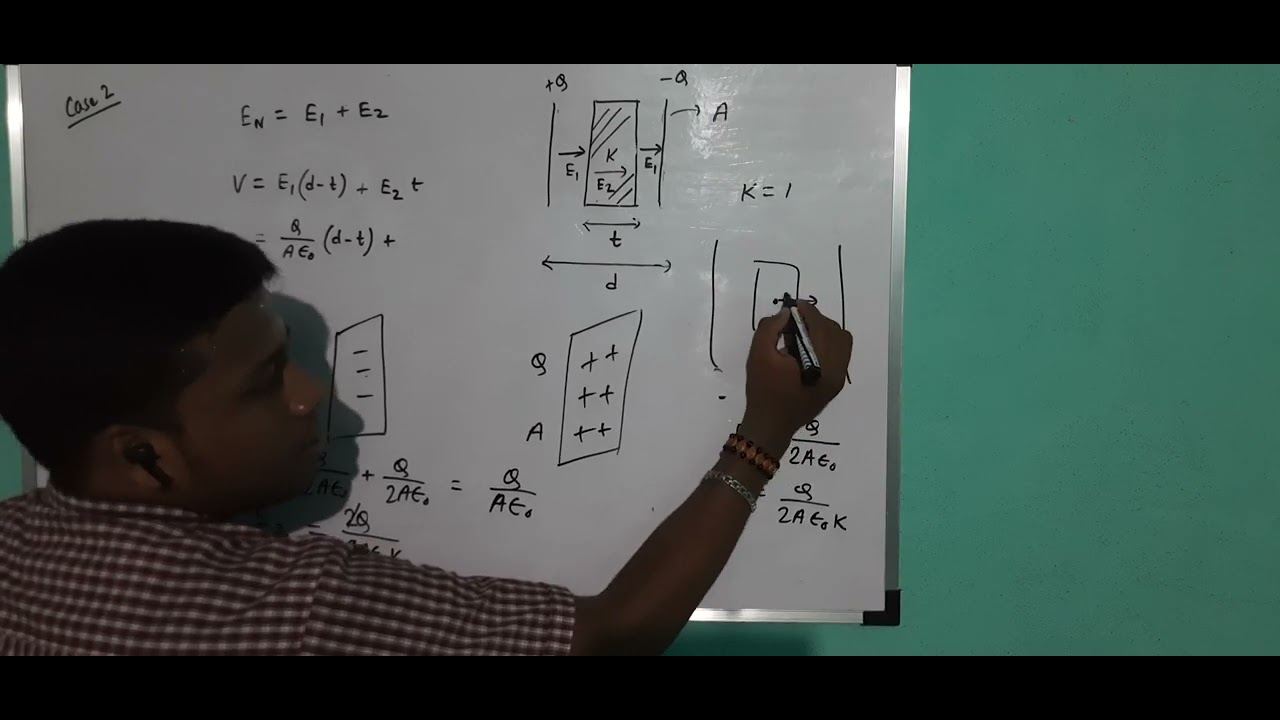 Case 2
E_N = E_1 + E_2
V = E_1(d-t) + E_2 t
= Q/Aϵ₀ (d-t) +
+Q
-Q
→ A
K
E_1
E_2
E_1
t
d
K = 1
− − −
Q
A
+ +
+ +
+ +
+ Q/2Aϵ₀ = Q/Aϵ₀
= 2Q
Q/2Aϵ₀
= Q/2Aϵ₀K